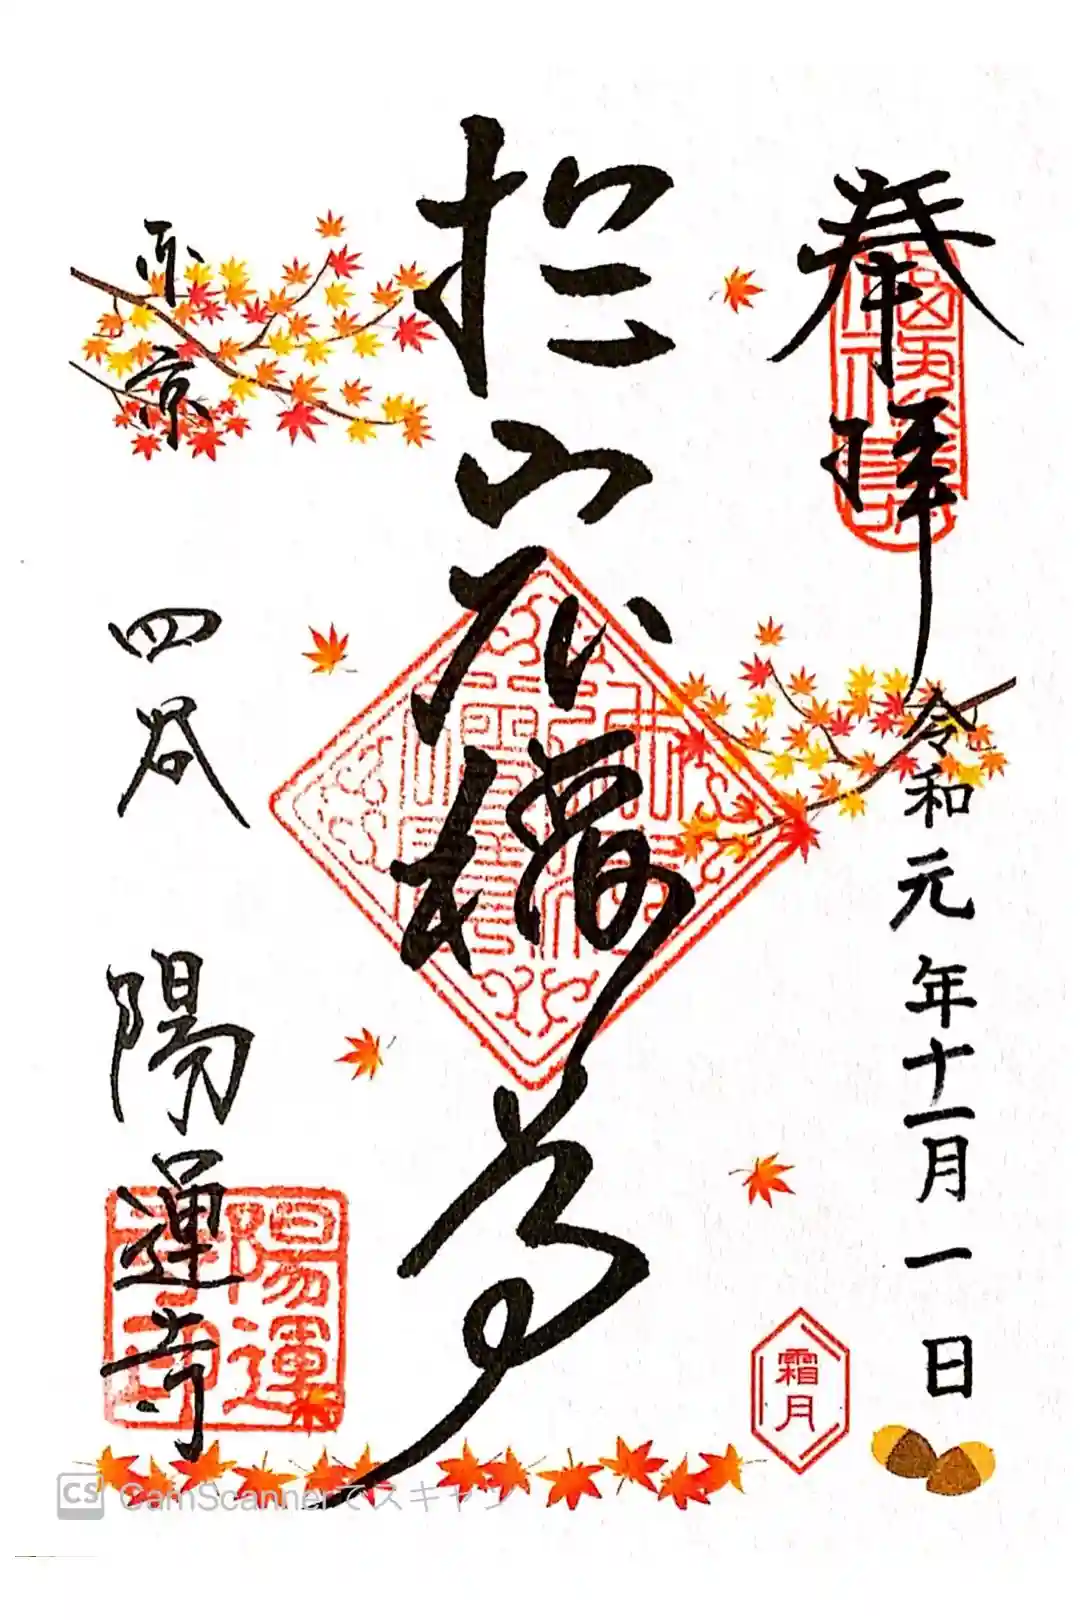 奉拝
令和元年十一月一日
霜月
於岩
東京
四谷
陽運寺
陽運寺印
CS CamScannerでスキャン